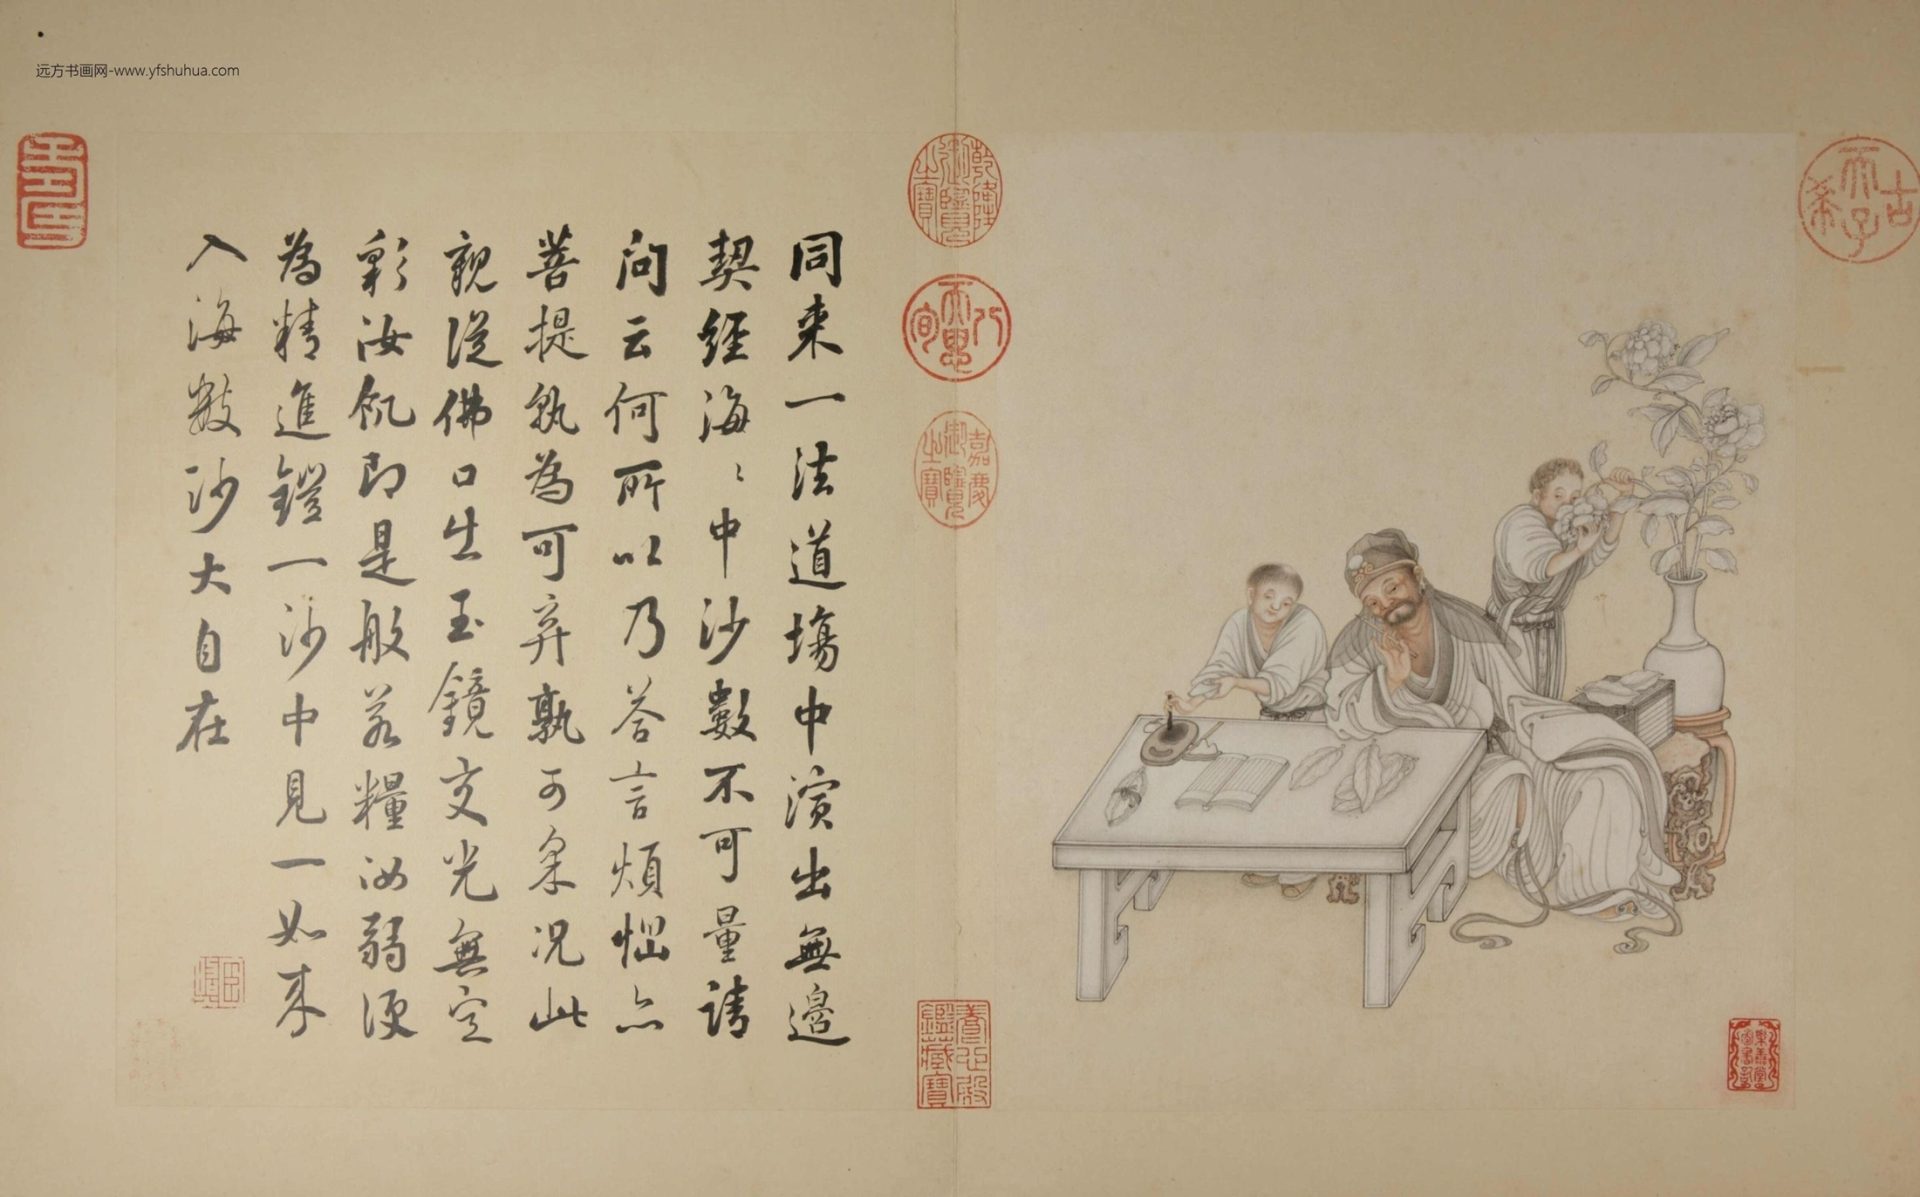 远方书画网-www.yfshuhua.com
古希天子
樂善堂圖書記
乾隆御覽之寶
八旬天恩
嘉慶御覽之寶
養心殿鑑藏寶
同来一法道場中演出無邊
契經海〻中沙數不可量請
问云何所以乃答言煩惱亦
菩提孰為可弃孰可采况此
親從佛口生玉鏡交光無定
彩汝飢即是般若糧汝弱便
為精進鎧一沙中見一如来
入海數沙大自在